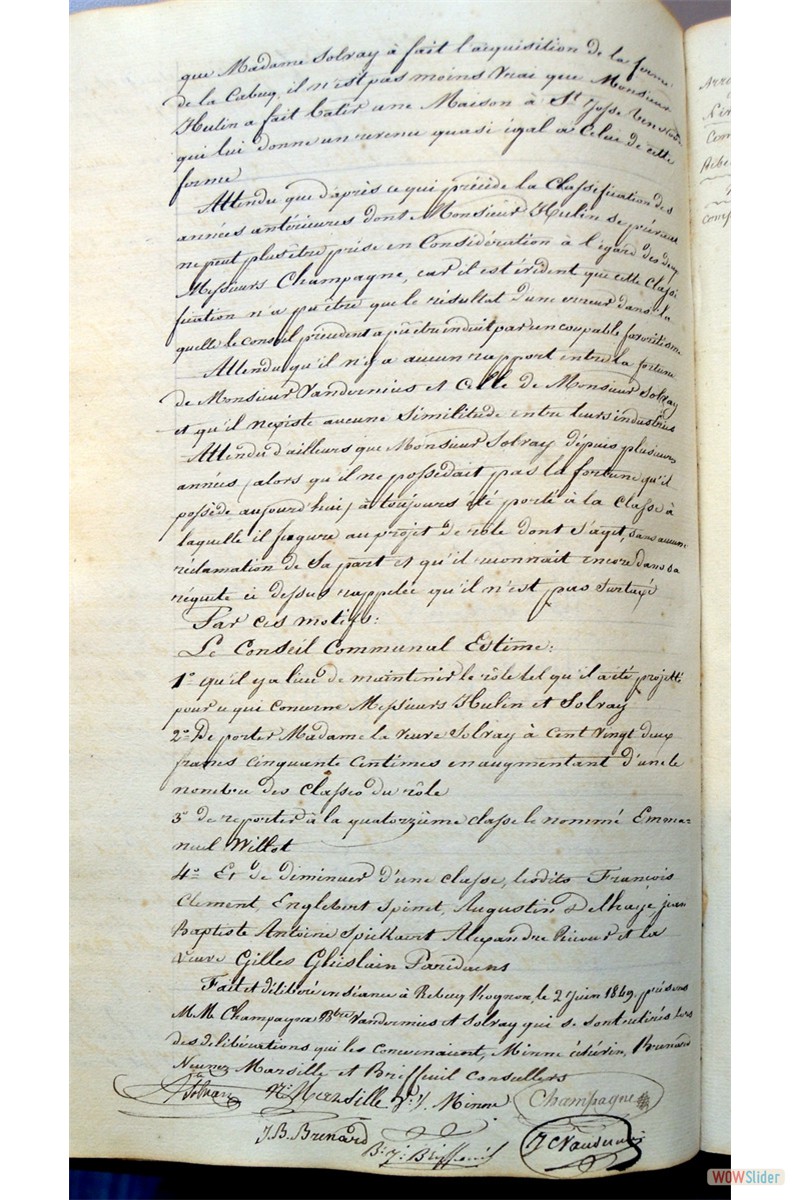 que Madame Solvay à fait l'acquisition de la ferme
de la Cabuq, il n'est pas moins Vrai que Monsieur
Hulin a fait batir une Maison à St Josse ten
qui lui donne un revenu quasi égal à Celui de cette
ferme
Attendu que d'après ce qui précède la Classification des
années antérieures dont Monsieur Hulin se prévaut
ne peut plus être prise en Considération à l'égard des deux
Messieurs Champagne, car il est évident que cette Classi
fication n'a pu être que le résultat d'une erreur dans la
quelle le conseil précédent a pu être induit par un coupable favoritisme
Attendu qu'il n'y a aucun rapport entre la fortune
de Monsieur Vandernius et Celle de Monsieur Solvay
et qu'il n'existe aucune Similitude entre leurs industries
Attendu d'ailleurs que Monsieur Solvay depuis plusieurs
années, (alors qu'il ne possedait pas la fortune qu'il
possède aujourd'hui) à toujours été porté à la Classe à
laquelle il figure au projet de rôle dont s'agit, sans aucune
réclamation de Sa part et qu'il reconnait encore dans sa
réquete ci dessus rappelée qu'il n'est pas Surtaxé
Par ces motifs:
Le Conseil Communal Estime:
1° qu'il y a lieu de maintenir le rôle tel qu'il a été projetté
pour ce qui concerne Messieurs Hulin et Solvay
2° De porter Madame la veuve Solvay à Cent Vingt deux
francs cinquante Centimes en augmentant d'une le
nombre des Classes du rôle
3° de reporter à la quatorzième classe le nommé Emma-
neul Willot
4° Et de diminuer d'une classe, lesdits François
Clement, Englebert Spinet, Augustin Delhaye, jean
Baptiste Antoine Spickaert Alexandre Ricour et la
veuve Gilles Ghislain Paridaens
Fait et délibéré en séance à Rebecq Rognon, le 2 juin 1849, présens
M.M. Champagne Btre Vandernius et Solvay qui se sont retirés lors
des délibérations qui les concernaient, Minne échevin, Brenard
Neunez Marsille et Briffeuil consellers
A Solvay N. Marsille P. J. Minne Champagne
J. B. Brenard B. J. Briffeuil J C Vandernius
Com
WOWSlider